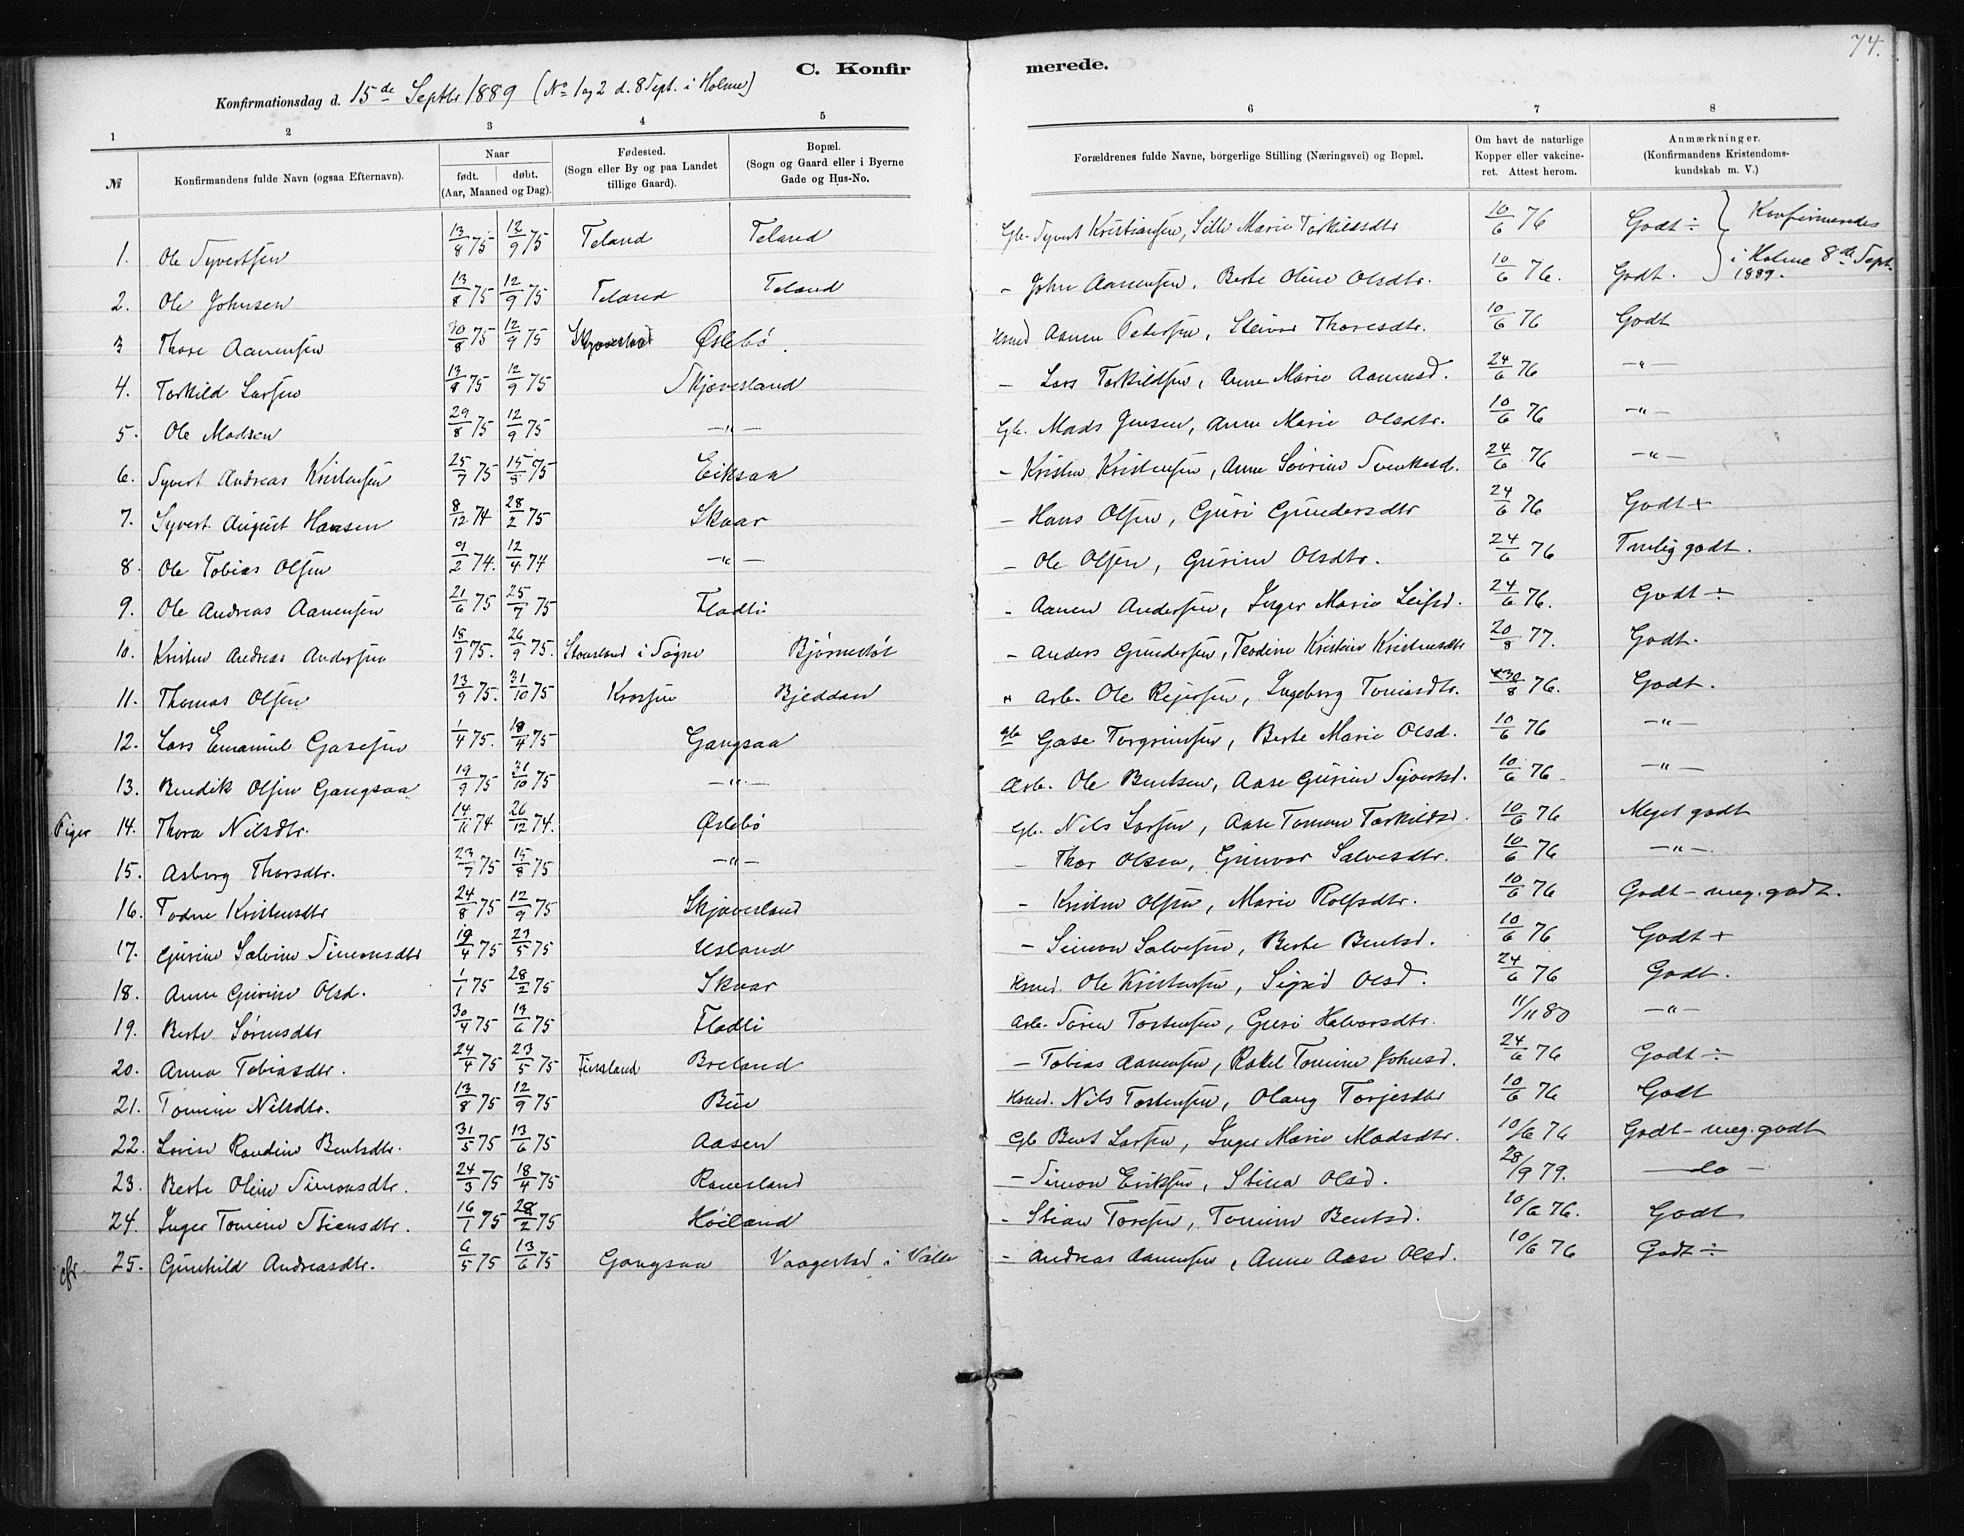 74.
C. Konfirmerede.
Konfirmationsdag d. 15de Septbr 1889 (No 1 og 2 d. 8 Sept. i Holme)
1 2 3 4 5 6 7 8
№ Konfirmandens fulde Navn (ogsaa Efternavn). Naar født. døbt. (Aar, Maaned og Dag). Fødested. (Sogn eller By og paa Landet tillige Gaard). Bopæl. (Sogn og Gaard eller i Byerne Gade og Hus-No. Forældrenes fulde Navne, borgerlige Stilling (Næringsvei) og Bopæl. Om havt de naturlige Kopper eller vakcineret. Attest herom. Anmærkninger. (Konfirmandens Kristendomskundskab m. V.)
1. Ole Syvertsen 13/8 75 12/9 75 Teland Teland Gb. Syvert Kristiansen, Silli Marie Torkildsdtr 10/6 76 Godt ÷ } Konfirmeredes
2. Ole Johnsen 13/8 75 12/9 75 Teland Teland - John Aanensen, Berte Oline Olsdtr. 10/6 76. Godt. } i Holme 8de Sept. 1889.
3 Thore Aanensen 30/8 75 12/9 75 Skjævesland Øslebø. Hsmd Aanen Pedersen, Steinor Thoresdtr. 10/6 76 Godt
4. Torkild Larsen 13/8 75 12/9 75 Skjævesland - Lars Torkildsen, Anne Marie Aanensd. 24/6 76 -"-
5. Ole Madsen 29/8 75 12/9 75 -"- Gb. Mads Jensen, Anne Marie Olsdtr. 10/6 76 -"-
6. Syvert Andreas Kristensen 25/7 75 15/8 75 Eiksaa - Kristen Kristensen, Anne Sørine Svenkesd. 24/6 76 -"-
7. Syvert August Hansen 8/12 74 28/2 75 Skuar - Hans Olsen, Guri Gundersdtr 24/6 76 Godt +
8. Ole Tobias Olsen 9/2 74. 12/4 74 -"- - Ole Olsen, Gurine Olsdtr. 24/6 76 Temlig godt.
9. Ole Andreas Aanensen 21/6 75 25/7 75 Fladli - Aanen Andersen, Inger Marie Leifsd. 24/6 76. Godt ÷
10. Kristen Andreas Andersen 18/9 75. 26/9 75. Stousland i Søgne Bjørnestøl - Anders Gundersen, Teodine Kristine Kristensdtr 20/8 77. Godt.
11. Thomas Olsen 13/9 75. 31/10 75 Krossen Bjeddan " Arb. Ole Rejersen, Ingeborg Tomasdtr. 30/8 76. Godt.
12. Lars Emanuel Gasesen 1/4 75. 18/4 75 Gangsaa gb Gase Torgrimsen, Berte Marie Olsd. 10/6 76 -"-
13. Bendik Olsen Gangsaa 19/9 75 31/10 75 -"- Arb. Ole Bentsen, Aase Gurine Syvertsd. 10/6 76 -"-
Piger 14. Thora Nilsdtr. 14/11 74 26/12 74. Øslebø Gb. Nils Larsen, Aase Tomine Torkildsd. 10/6 76 Meget godt
15. Asborg Thorsdtr. 23/7 75 15/8 75 -"- - Thor Olsen, Gunvor Salvesdtr. 10/6 76 -"-.
16. Todne Kristensdtr 24/8 75 12/9 75 Skjævesland - Kristen Olsen, Marie Rolfsdtr. 10/6 76 Godt - meg. godt.
17. Gurine Salvine Simonsdtr 19/4 75 23/5 75 Usland - Simon Salvesen, Berte Bentsd. 10/6 76 Godt +
18. Anne Gurine Olsd. 1/1 75 28/2 75 Skuar Hsmd. Ole Kristensen, Sigrid Olsd. 24/6 76 Godt.
19. Berte Sørensdtr 30/4 75 13/6 75 Fladli Arb. Søren Tostensen, Guri Halvorsdtr. 11/11 80 -"-
20. Anna Tobiasdtr. 24/4 75 23/5 75 Finsland Breland - Tobias Aanensen, Rakel Tomine Johnsd. 24/6 76 Godt ÷
21. Tomine Nilsdtr. 13/8 75 12/9 75 Bue Hsmd. Nils Tostensen, Olaug Torjesdtr 10/6 76 Godt
22. Lovise Randine Bentsdtr. 31/5 75 13/6 75 Aasen Gb Bent Larsen, Inger Marie Madsdtr. 10/6 76 Godt - meg. godt
23. Berte Oline Simonsdtr. 24/3 75 18/4 75 Ranesland - Simon Eriksen, Stina Olsd. 28/9 79. - do -
24. Inger Tomine Stiansdtr. 16/1 75 28/2 75 Høiland - Stian Toresen, Tomine Bentsd. 10/6 76. Godt
cfr. 25. Gunhild Andreasdtr. 6/5 75 13/6 75 Gangsaa Vaagestad i Valle - Andreas Aanensen, Anne Aase Olsd. 10/6 76 Godt ÷